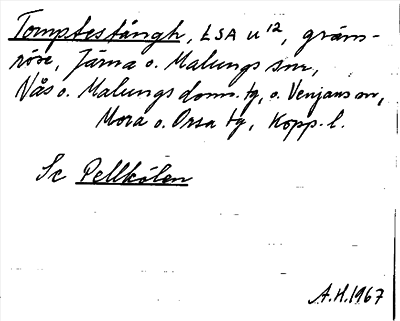 Tomptestångh, LSA u 12, gräns-
röse, Järna o. Malungs snr,
Nås o. Malungs doms. tg, o. Venjans sn,
Mora o. Orsa tg, Kopp. l.
Se Pellkölen
A.H. 1967